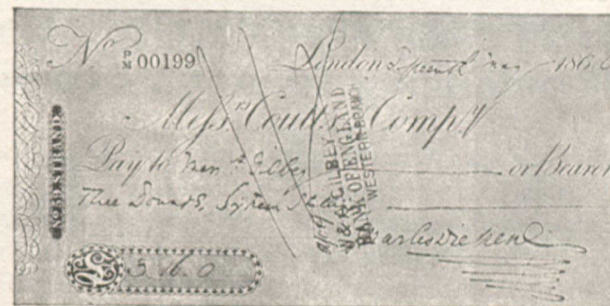 No P/M 00199
London 186
Messrs Coutts & Compy
Pay to Gilbey or Bearer
Three Pounds, Sixteen
£ 3.16.0
Charles Dickens
W & A. GILBEY
BANK OF ENGLAND
WESTERN BRANCH